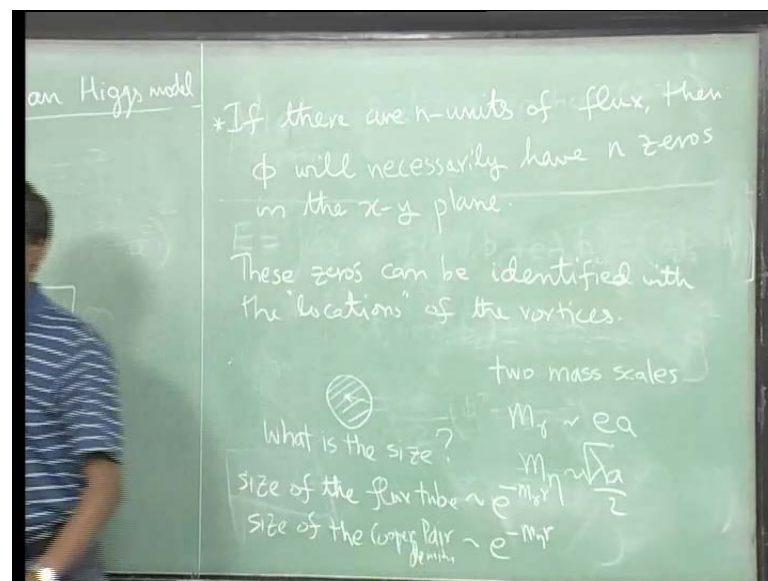 an Higgs model
*If there are n-units of flux, then
ϕ will necessarily have n zeros
in the x-y plane.
E =
These zeros can be identified with
the "locations" of the vortices.
two mass scales
m_γ ~ ea
What is the size?
m_η ~ √λa/2
size of the flux tube ~ e^{-m_γ r}
size of the Cooper Pair ~ e^{-m_η r}
density